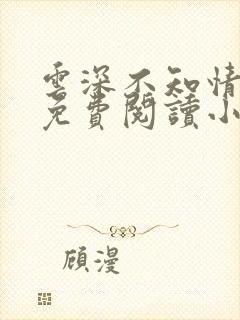 雲深不知情
免費閱讀小
顾漫